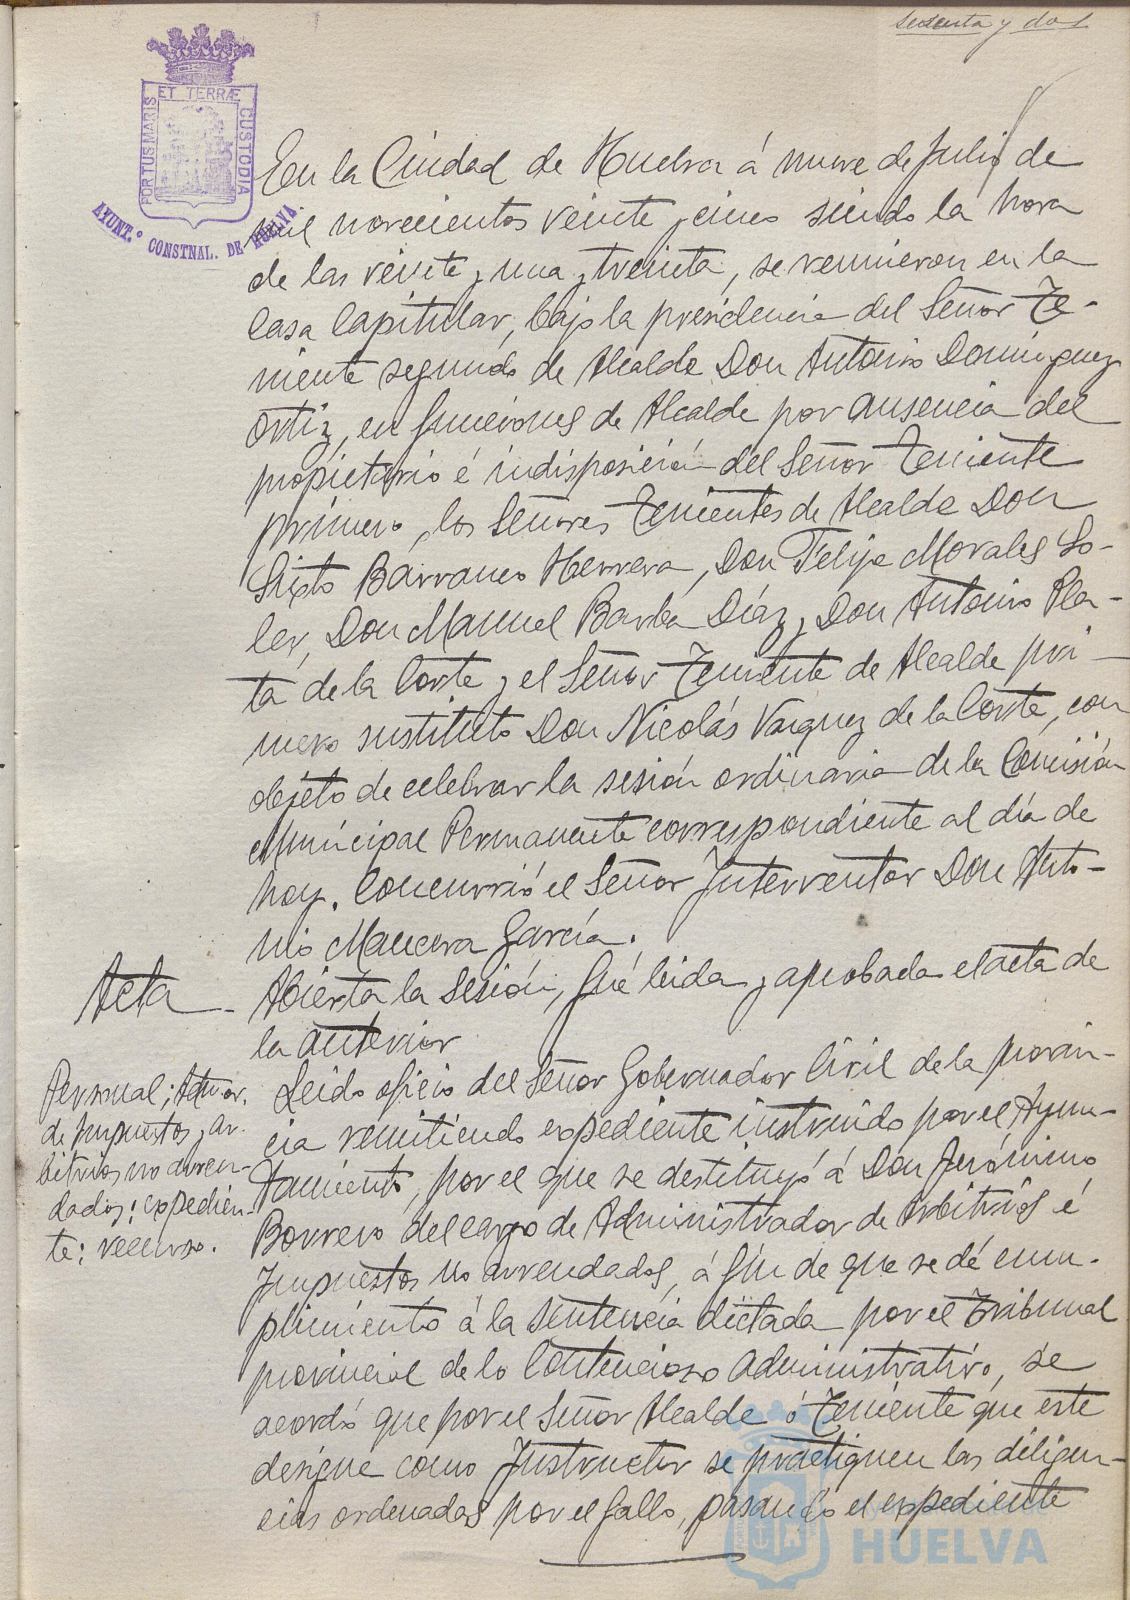 sesenta y dos
PORTUS MARIS ET TERRÆ CUSTODIA
AYUNT.º CONSTNAL. DE HUELVA
En la Ciudad de Huelva á nueve de Julio de
mil novecientos veinte y cinco siendo la hora
de las veinte y una y treinta, se reunieron en la
Casa Capitular, bajo la presidencia del Señor Te-
niente segundo de Alcalde Don Antonio Dominguez
Ortiz, en funciones de Alcalde por ausencia del
propietario é indisposición del Señor Teniente
primero, los Señores Tenientes de Alcalde Don
Sixto Barranco Herrera, Don Felipe Morales So-
ler, Don Manuel Barba Díaz y Don Antonio Pla-
ta de la Corte y el Señor Teniente de Alcalde pri-
mero sustituto Don Nicolás Vazquez de la Corte, con
objeto de celebrar la sesión ordinaria de la Comisión
Municipal Permanente correspondiente al día de
hoy. Concurrió el Señor Interventor Don Anto-
nio Mancera García.
Acta
Abierta la Sesión, fué leida y aprobada el acta de
la anterior
Personal; Admor.
de Impuestos y ar-
bitrios no arren-
dados: expedien-
te; recurso.
Leido oficio del Señor Gobernador Civil de la provin-
cia remitiendo expediente instruido por el Ayun-
tamiento, por el que se destituyó á Don Jerónimo
Borrero del cargo de Administrador de Arbitrios é
Impuestos no arrendados, á fin de que se dé cum-
plimiento á la sentencia dictada por el Tribunal
provincial de lo Contencioso administrativo, se
acordó que por el Señor Alcalde ó Teniente que este
designe como Instructor se practiquen las diligen-
cias ordenadas por el fallo, pasando el expediente
HUELVA